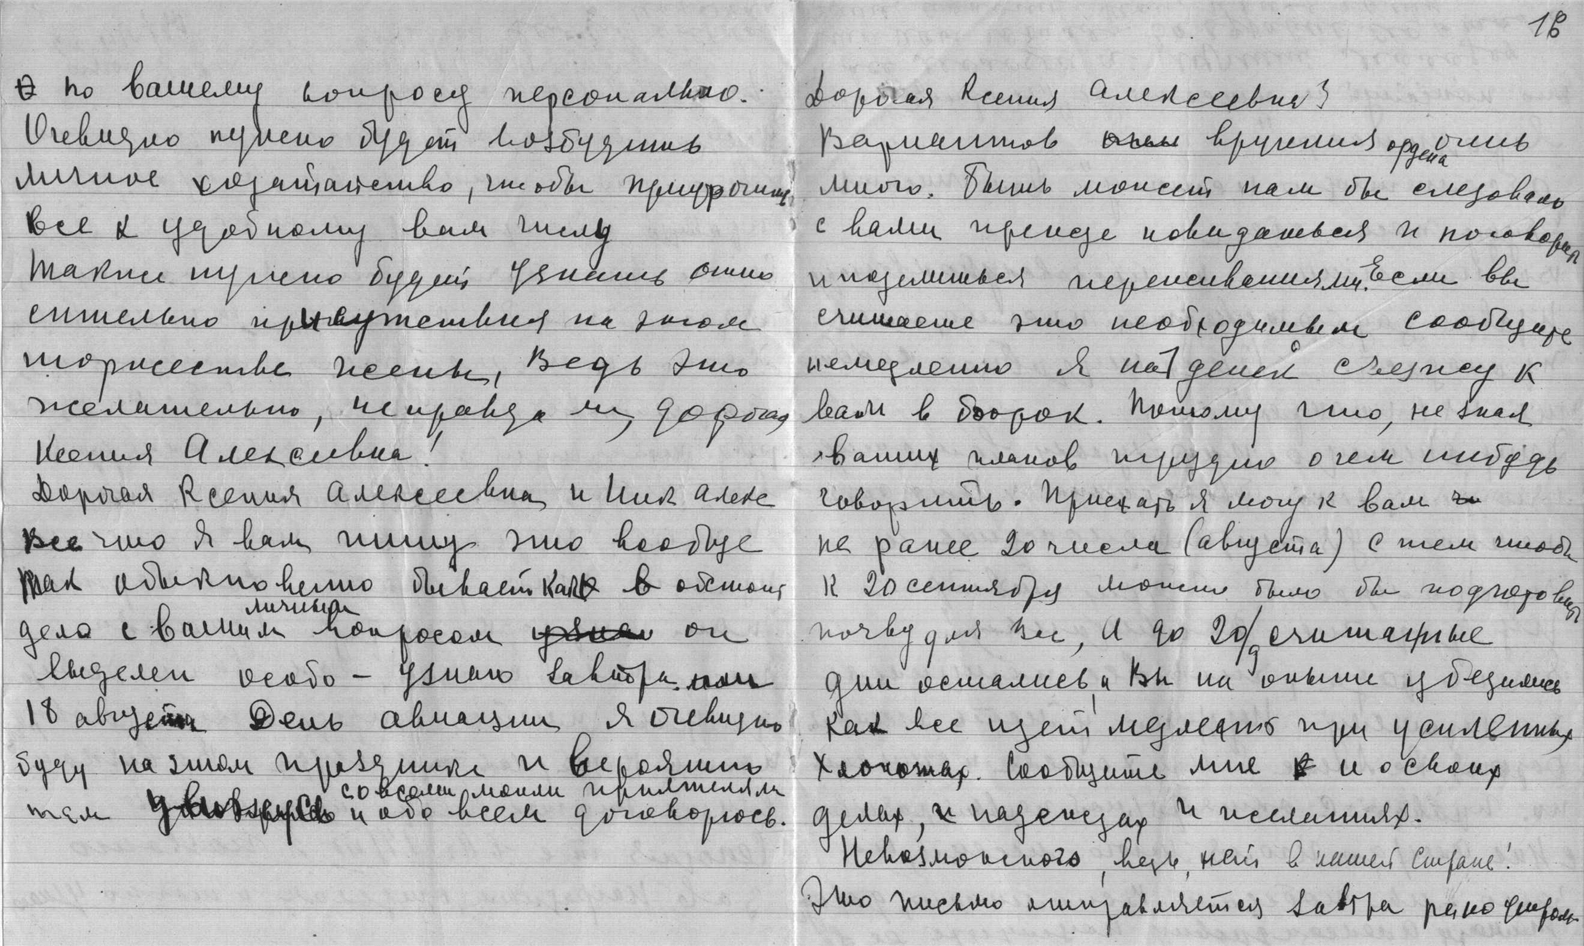 по вашему вопросу персонально.
Очевидно нужно будет возбудить
личное ходатайство, чтобы приурочить
все к удобному вам числу
также нужно будет узнать отно
сительно присутствия на этом
торжестве жены, Ведь это
желательно, не правда ли, дорогая
Ксения Алексеевна!
Дорогая Ксения Алексеевна и Ник Алекс
Все что я вам пишу это вообще
так обыкновенно бывает как в обстоит
дело с вашим личным вопросом узнаю он
выделен особо – узнаю завтра
18 августа День авиации я очевидно
буду на этом празднике и вероятно
там увижусь со всеми моими приятелями и обо всем договорюсь.
18
Дорогая Ксения Алексеевна!
Вариантов вручения ордена очень
много. Быть может нам бы следовало
с вами прежде повидаться и поговорить
и поделиться переживаниями. Если вы
считаете это необходимым сообщите
немедленно я на 1 денек съезжу к
вам в Борок. Потому что, не зная
ваших планов трудно о чем нибудь
говорить. Приехать я могу к вам
не ранее 20 числа (августа) с тем чтобы
к 20 сентября можно было бы подготовить
почву для Вас, А до 20/9 считанные
дни остались, а Вы на опыте убедились
как все идет медленно при усиленных
хлопотах. Сообщите мне и о своих
делах, и надеждах и желаниях.
Невозможного, ведь, нет в нашей стране!
Это письмо отправляется завтра рано утром